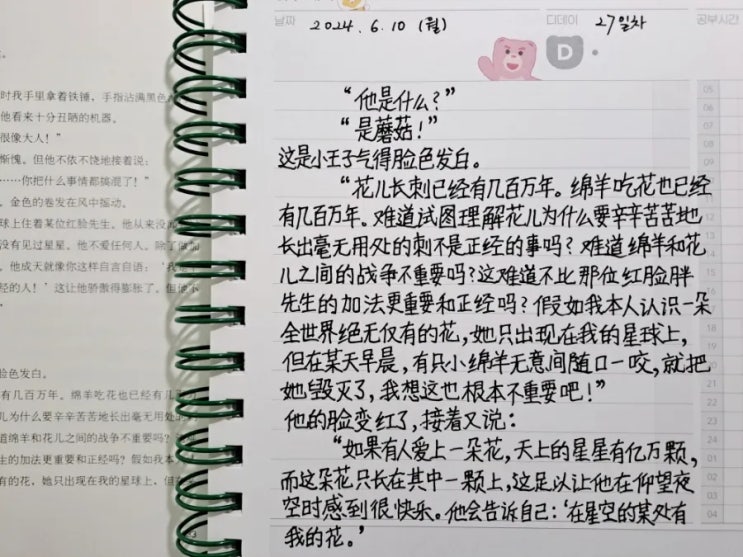 时我手里拿着铁锤，手指沾满黑色
他看来十分丑陋的机器。
很像大人！”
惭愧。但他不依不饶地接着说：
……你把什么事情都搞混了！”
金色的卷发在风中摇动。
球上住着某位红脸先生。他从来没
没有见过星星。他不爱任何人。除了做加
他成天就像你这样自言自语：‘我是
经的人！’这让他骄傲得膨胀了。但他不
脸色发白。
有几百万年。绵羊吃花也已经有几百
儿为什么要辛辛苦苦地长出毫无用处的
道绵羊和花儿之间的战争不重要吗？
生的加法更重要和正经吗？假如我本
有的花，她只出现在我的星球上，但
날짜 2024.6.10 (월) 디데이 27일차 공부시간
D
“他是什么？”
“是蘑菇！”
这是小王子气得脸色发白。
“花儿长刺已经有几百万年。绵羊吃花也已经
有几百万年。难道试图理解花儿为什么要辛辛苦苦地
长出毫无用处的刺不是正经的事吗？难道绵羊和花
儿之间的战争不重要吗？这难道不比那位红脸胖
先生的加法更重要和正经吗？假如我本人认识一朵
全世界绝无仅有的花，她只出现在我的星球上，
但在某天早晨，有只小绵羊无意间随口一咬，就把
她毁灭了，我想这也根本不重要吧！”
他的脸变红了，接着又说：
“如果有人爱上一朵花，天上的星星有亿万颗，
而这朵花只长在其中一颗上，这足以让他在仰望夜
空时感到很快乐。他会告诉自己：‘在星空的某处有
我的花。’
05
06
07
08
09
10
11
12
13
14
15
16
17
18
19
20
21
22
23
24
01
02
03
04